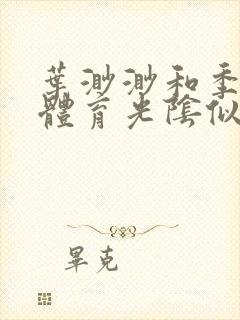 葉渺渺和季
體育光陰似
畢克